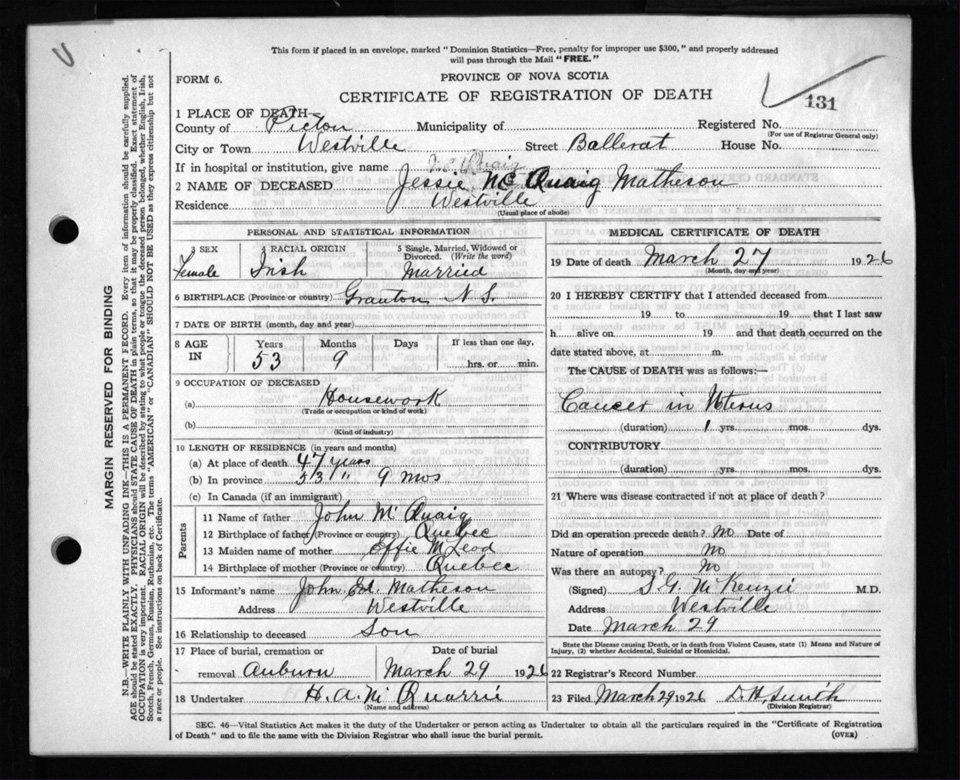 This form if placed in an envelope, marked "Dominion Statistics—Free, penalty for improper use $300," and properly addressed
will pass through the Mail "FREE."
FORM 6.
PROVINCE OF NOVA SCOTIA
CERTIFICATE OF REGISTRATION OF DEATH
131
1 PLACE OF DEATH—
County of Pictou Municipality of Registered No.
(For use of Registrar General only)
City or Town Westville Street Ballerat House No.
If in hospital or institution, give name Mc Quaig
2 NAME OF DECEASED Jessie Mc Quaig Matheson
Residence Westville
(Usual place of abode)
PERSONAL AND STATISTICAL INFORMATION
3 SEX 4 RACIAL ORIGIN 5 Single, Married, Widowed or
Divorced. (Write the word)
Female Irish Married
6 BIRTHPLACE (Province or country) Granton N.S.
7 DATE OF BIRTH (month, day and year)
8 AGE IN Years Months Days If less than one day,
53 9 hrs. or min.
9 OCCUPATION OF DECEASED
(a) Housework
(Trade or occupation or kind of work)
(b)
(Kind of industry)
10 LENGTH OF RESIDENCE (in years and months)
(a) At place of death 47 years
(b) In province 53 " 9 mos
(c) In Canada (if an immigrant)
Parents
11 Name of father John Mc Quaig
12 Birthplace of father (Province or country) Quebec
13 Maiden name of mother Effie McLeod
14 Birthplace of mother (Province or country) Quebec
15 Informant's name John Ed. Matheson
Address Westville
16 Relationship to deceased Son
17 Place of burial, cremation or Date of burial
removal Auburn March 29 1926
18 Undertaker H. A. Mc Quarrie
(Name and address)
MEDICAL CERTIFICATE OF DEATH
19 Date of death March 27 1926
(Month, day and year)
20 I HEREBY CERTIFY that I attended deceased from
19 to 19 that I last saw
h alive on 19 and that death occurred on the
date stated above, at m.
The CAUSE of DEATH was as follows:—
Cancer in Uterus
(duration) 1 yrs. mos. dys.
CONTRIBUTORY
(duration) yrs. mos. dys.
21 Where was disease contracted if not at place of death?
Did an operation precede death? No Date of
Nature of operation No
Was there an autopsy? No
(Signed) S. G. McKenzie M.D.
Address Westville
Date March 29
State the Disease causing Death, or in death from Violent Causes, state (1) Means and Nature of
Injury, (2) whether Accidental, Suicidal or Homicidal.
22 Registrar's Record Number
23 Filed March 29 1926 D. H. Smith
(Division Registrar)
SEC. 46—Vital Statistics Act makes it the duty of the Undertaker or person acting as Undertaker to obtain all the particulars required in the "Certificate of Registration
of Death" and to file the same with the Division Registrar who shall issue the burial permit. (OVER)
MARGIN RESERVED FOR BINDING
N.B.—WRITE PLAINLY, WITH UNFADING INK—THIS IS A PERMANENT RECORD. Every item of information should be carefully supplied.
AGE should be stated EXACTLY. PHYSICIANS should STATE CAUSE OF DEATH in plain terms, so that it may be properly classified. Exact statement of
OCCUPATION is very important. RACIAL ORIGIN will be described by stating to what people or tongue the deceased person belonged, whether English, Irish,
Scotch, French, German, Russian, Ruthenian, etc. The terms "AMERICAN" or "CANADIAN" SHOULD NOT BE USED as they express citizenship but not
a race or people. See instructions on back of Certificate.